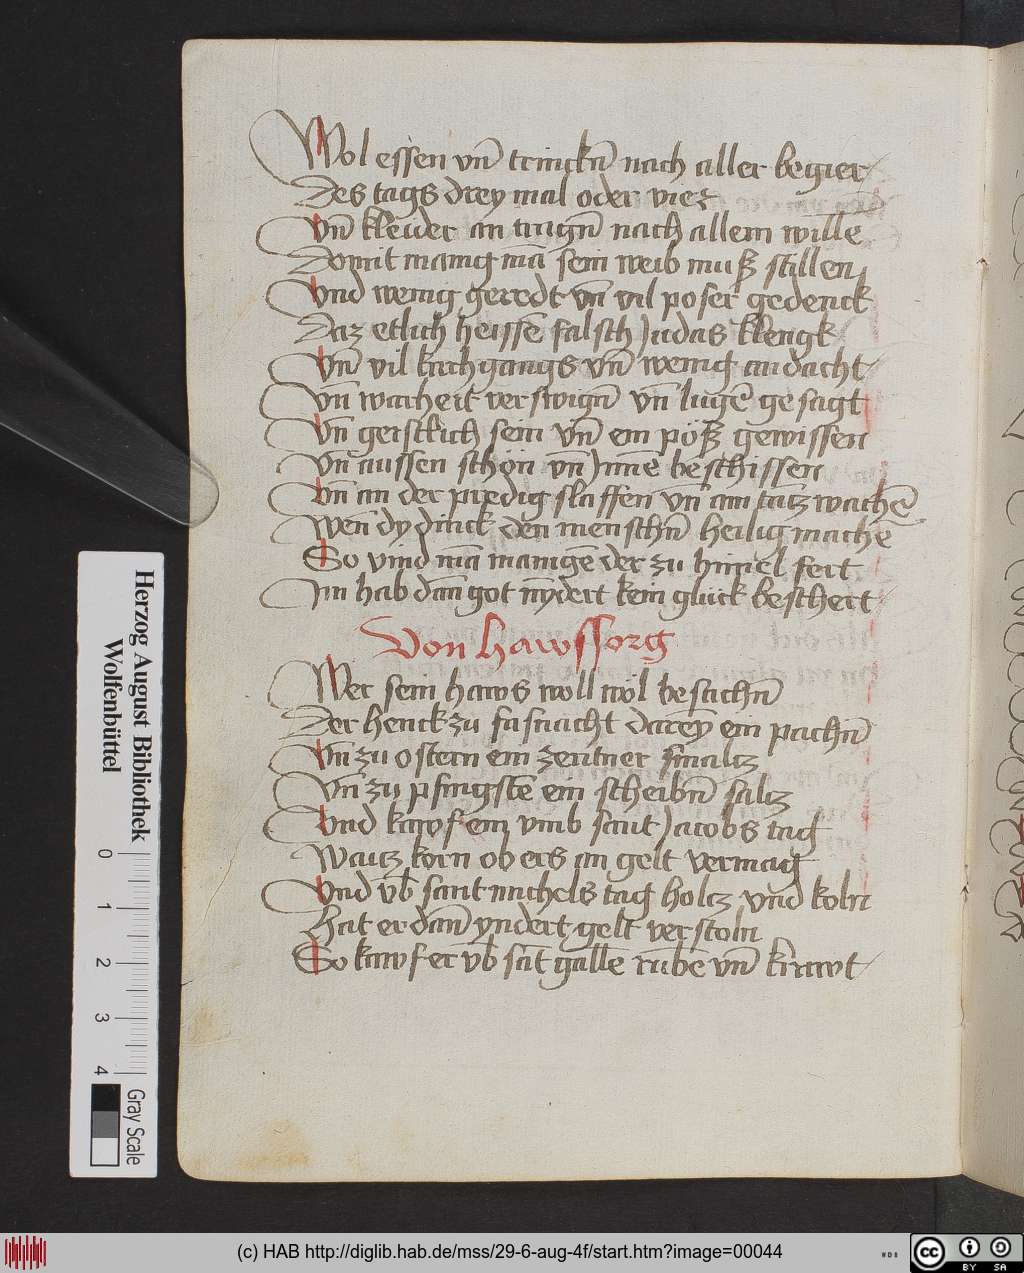 Wol essen vn̄ trinckn̄ nach aller begier
Des tags drey mal oder vier
Vn̄ kleider an tragn̄ nach allem wille
Domit manig mā sein weib muß stillen
Vnd wenig geredt vn̄ vil poser gedenck
Daz etlich heissē falsch Judas klengk
Vn̄ vil kirchgangs vn̄ wenig andacht
Vn̄ warheit verswign̄ vn̄ lugē gesagt
Vn̄ geistlich sein vn̄ ein pöß gewissen
Vn̄ aussen schön vn̄ Innē beschissen
Vn̄ an der predig slaffen vn̄ am tantz wachē
Wen̄ dy dinck den menschn̄ heilig machē
So vind mā manigē der zu himel fert
Im hab dan̄ got nyndert kein gluck beschert
Von hawssorg
Wer sein haws woll wil besachn̄
Der henck zu fasnacht dareȳ ein pachn̄
Vn̄ zu ostern ein zentner smaltz
Vn̄ zu pfingstē ein scheibn̄ saltz
Vnd kawf ein vmb sant Jacobs tag
Waitz korn ob ers an gelt vermag
Vnd vb̄ sant michels tag holtz vnd koln
Hat er dan̄ yndert gelt verstoln
So kawf er vb̄ sāt gallē rubē vn̄ krawt
Herzog August Bibliothek
Wolfenbüttel
0 1 2 3 4
Gray Scale
(c) HAB http://diglib.hab.de/mss/29-6-aug-4f/start.htm?image=00044
WDB
cc BY SA